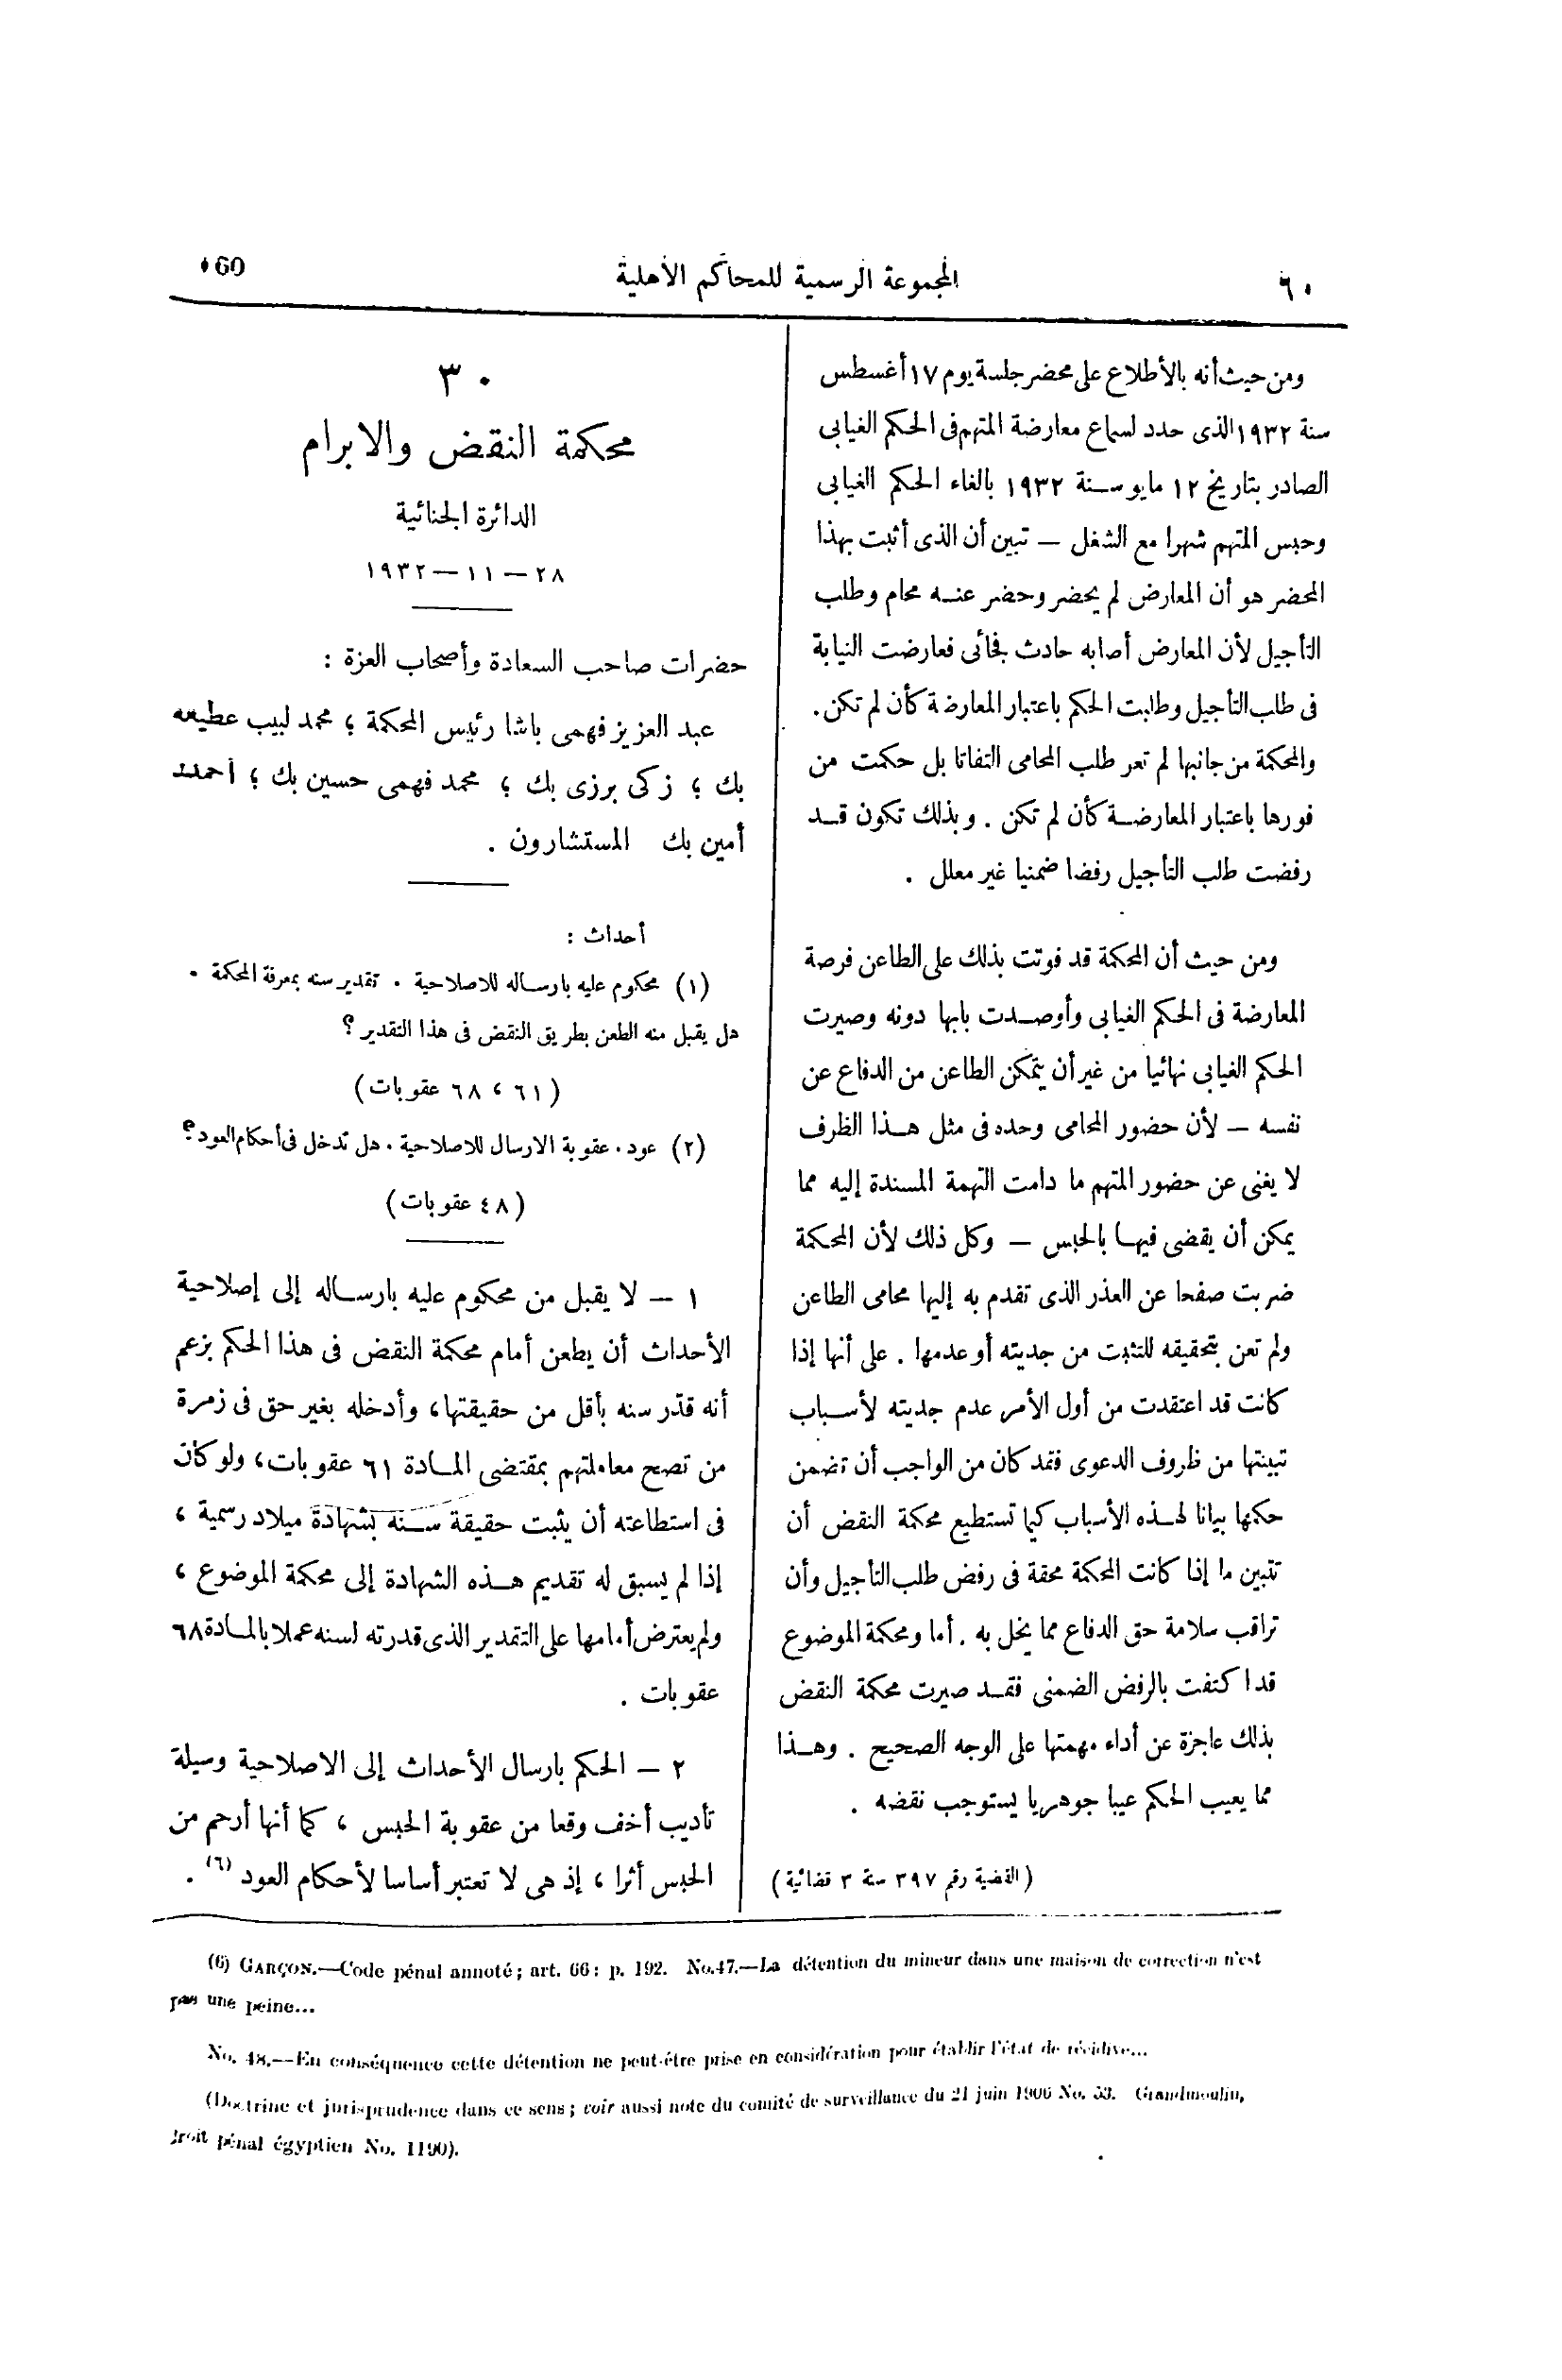 ٦٠
المجموعة الرسمية للمحاكم الأهلية
60
ومن حيث أنه بالأطلاع على محضر جلسة يوم ١٧ أغسطس
سنة ١٩٣٢ الذى حدد لسماع معارضة المتهم فى الحكم الغيابى
الصادر بتاريخ ١٢ مايو سنة ١٩٣٢ بالغاء الحكم الغيابى
وحبس المتهم شهرا مع الشغل – تبين أن الذى أثبت بهذا
المحضر هو أن المعارض لم يحضر وحضر عنه محام وطلب
التأجيل لأن المعارض أصابه حادث فجائى فعارضت النيابة
فى طلب التأجيل وطلبت الحكم باعتبار المعارضة كأن لم تكن .
والمحكمة من جانبها لم تعر طلب المحامى التفاتا بل حكمت من
فورها باعتبار المعارضة كأن لم تكن . وبذلك تكون قد
رفضت طلب التأجيل رفضا ضمنيا غير معلل .
ومن حيث أن المحكمة قد فوتت بذلك على الطاعن فرصة
المعارضة فى الحكم الغيابى وأوصدت بابها دونه وصيرت
الحكم الغيابى نهائيا من غير أن يتمكن الطاعن من الدفاع عن
نفسه – لأن حضور المحامى وحده فى مثل هذا الظرف
لا يغنى عن حضور المتهم ما دامت التهمة المسندة إليه مما
يمكن أن يقضى فيها بالحبس – وكل ذلك لأن المحكمة
ضربت صفحا عن العذر الذى تقدم به إليها محامى الطاعن
ولم تعن بتحقيقه للتثبت من جديته أو عدمها . على أنها إذا
كانت قد اعتقدت من أول الأمر عدم جديته لأسباب
تبينتها من ظروف الدعوى فقد كان من الواجب أن تضمن
حكمها بيانا لهذه الأسباب كيما تستطيع محكمة النقض أن
تتبين ما إذا كانت المحكمة محقة فى رفض طلب التأجيل وأن
تراقب سلامة حق الدفاع مما يخل به . أما ومحكمة الموضوع
قد اكتفت بالرفض الضمنى فقد صيرت محكمة النقض
بذلك عاجزة عن أداء مهمتها على الوجه الصحيح . وهذا
مما يعيب الحكم عيبا جوهريا يستوجب نقضه .
(القضية رقم ٣٩٧ سنة ٣ قضائية)
٣٠
محكمة النقض والابرام
الدائرة الجنائية
٢٨ – ١١ – ١٩٣٢
حضرات صاحب السعادة وأصحاب العزة :
عبد العزيز فهمى باشا رئيس المحكمة ؛ محمد لبيب عطيه
بك ؛ زكى برزى بك ؛ محمد فهمى حسين بك ؛ أحمد
أمين بك المستشارون .
أحداث :
(١) محكوم عليه بارساله للاصلاحية . تقدير سنه بمعرفة المحكمة .
هل يقبل منه الطعن بطريق النقض فى هذا التقدير ؟
(٦١ ، ٦٨ عقوبات)
(٢) عود . عقوبة الارسال للاصلاحية . هل تدخل فى أحكام العود ؟
(٤٨ عقوبات)
١ – لا يقبل من محكوم عليه بارساله إلى إصلاحية
الأحداث أن يطعن أمام محكمة النقض فى هذا الحكم بزعم
أنه قدّر سنه بأقل من حقيقتها ، وأدخله بغير حق فى زمرة
من تصح معاملتهم بمقتضى المادة ٦١ عقوبات ، ولو كان
فى استطاعته أن يثبت حقيقة سنه بشهادة ميلاد رسمية ،
إذا لم يسبق له تقديم هذه الشهادة إلى محكمة الموضوع ،
ولم يعترض أمامها على التقدير الذى قدرته لسنه عملا بالمادة ٦٨
عقوبات .
٢ – الحكم بارسال الأحداث إلى الاصلاحية وسيلة
تأديب أخف وقعا من عقوبة الحبس ، كما أنها أرحم من
الحبس أثرا ، إذ هى لا تعتبر أساسا لأحكام العود (٦) .
(6) GARÇON.—Code pénal annoté; art. 66: p. 192. No.47.—La détention du mineur dans une maison de correction n'est
pas une peine...
No. 48.—En conséquence cette détention ne peut-être prise en considération pour établir l'état de récidive...
(Doctrine et jurisprudence dans ce sens; voir aussi note du comité de surveillance du 21 juin 1906 No. 53. Grandmoulin,
droit pénal égyptien No. 1190).